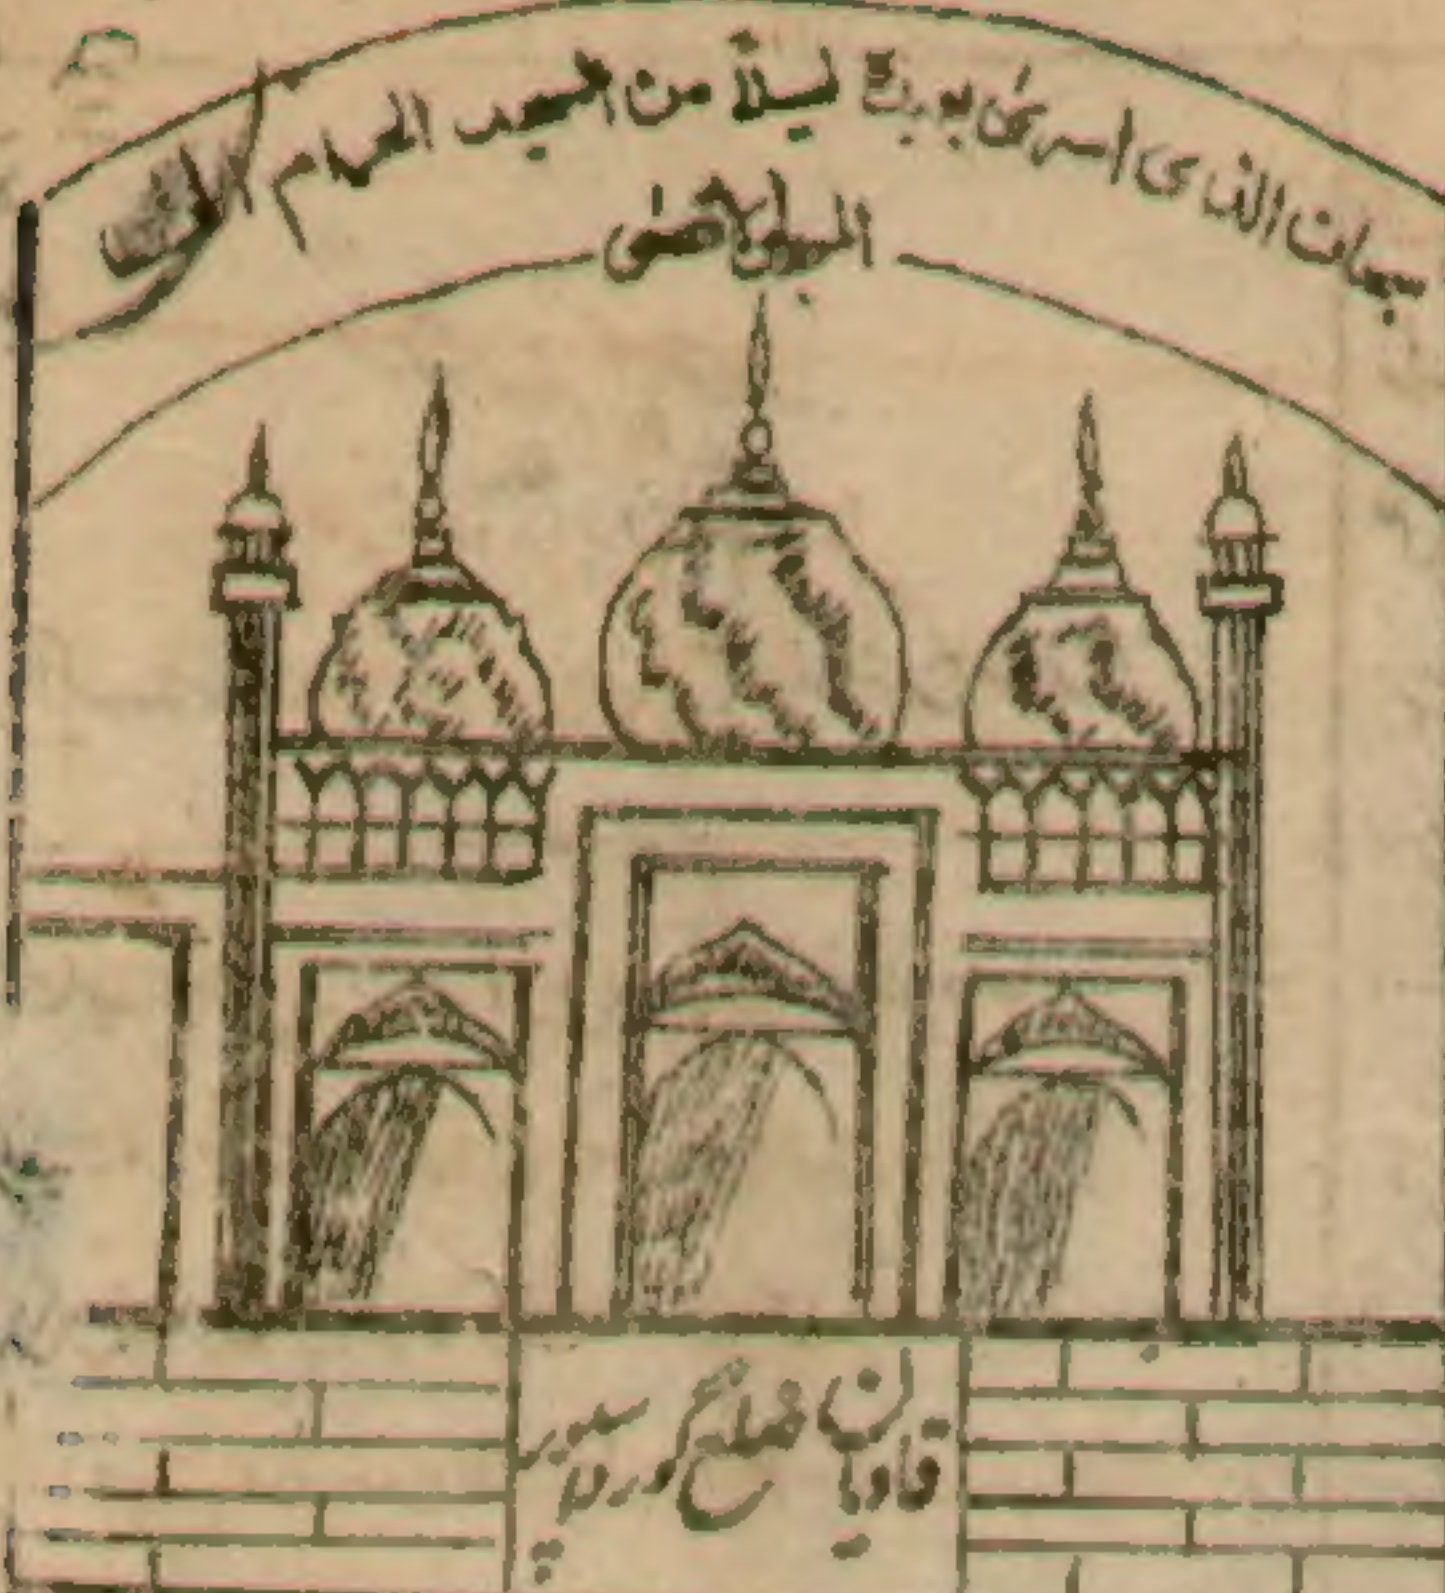 سبحان الذی اسریٰ بعبدہ لیلاً من المسجد الحرام الی
المسجد الاقصیٰ
قادیان ضلع گورداسپور